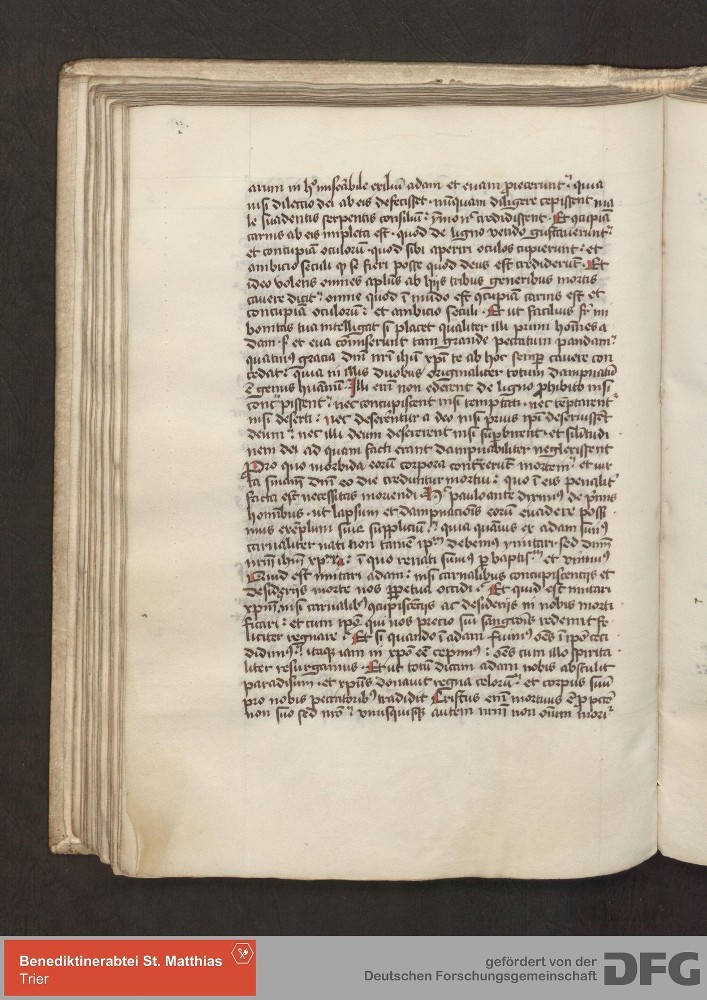 arum in h° miserabile exiliū adam et euam proiecerunt · quia
nisi dilectio dei ab eis defecisset · nūquam diligere cepissent ma
le suadentis serpentis consiliū · ymo nō credidissent · Et gcupia
carnis ab eis impleta est · quod de ligno vetido gustauerunt
et concupia oculorū · quod sibi aperiri oculos cupierunt : et
ambicio seculi q se fieri posse quod deus est crediderūt · Et
ideo volens omnes aplūs ab hijs tribus generibus mortis
cauere dicit : omne quod ī mūdo est gcupia carnis est et
concupia oculorū : et ambicio seculi · Et ut facilius
bonitas tua intelligat si placet qualiter illi primi hoīes a
dam · s et eua cōmiserunt tam grande peccatum pandam
quatinꝰ gracia dnī nrī ihū xpī te ab hoc semꝑ cauere con
cedat : quia in illis duobus originaliter totum dampnatū
ē genus hūanū · Illi em̄ non ederent de ligno ꝓhibito nisi
pissent : nec concupiscent nisi temptati · nec tēptarent
nisi deserti : nec deserēntur a deo nisi prius ipī deseruissēt
deum : nec illi deum desererent nisi suꝑbirent · et silitudi
nem dei ad quam facti erant dampnabiliter neglexissent
Pro quo morbida eorū corpora contxerūt mortem et iux
ta sniam dnī eo die creduntur mortui : quo ī eis penalit
facta est necessitas moriendi · pauloante diximꝰ de primis
hominibus · ut lapsum et dampnacioīs eorū euadere possi
mus exeplum siue suppliciū : quia quāuis ex adam sumꝰ
carnaliter nati non tamē ipm debemꝰ ymitari · sed dnm
nrm ihm xpm : ī quo renati sumꝰ per baptismū et vniuꝰ
Quid est imitari adam : nisi carnalibus concupiscencijs et
desiderijs morte nos ꝑpetua occidi · Et quid est imitari
xpm nisi carnalibꝰ gcupiscencijs ac desiderijs in nobis morti
ficari : et cum ipō qui nos precio sui sangwīs redemit fe
liciter regnare : Et si quando ī adam fuimꝰ oēs ī ipō ceci
dimꝰ : itaqꝫ iam in xpō eē cepimꝰ : oēs cum illo spirita
liter resurgamus · Et ut totū dicam adam nobis abstulit
paradisum · et xpūs donauit regna celorū et corpus suū
pro nobis peccatoribꝰ tradidit Cristus em̄ mortuus ē ꝓ pctō
non suo sed nrō : vnusquisqꝫ autem nrm non moriʳ
Benediktinerabtei St. Matthias
Trier
gefördert von der
Deutschen Forschungsgemeinschaft
DFG